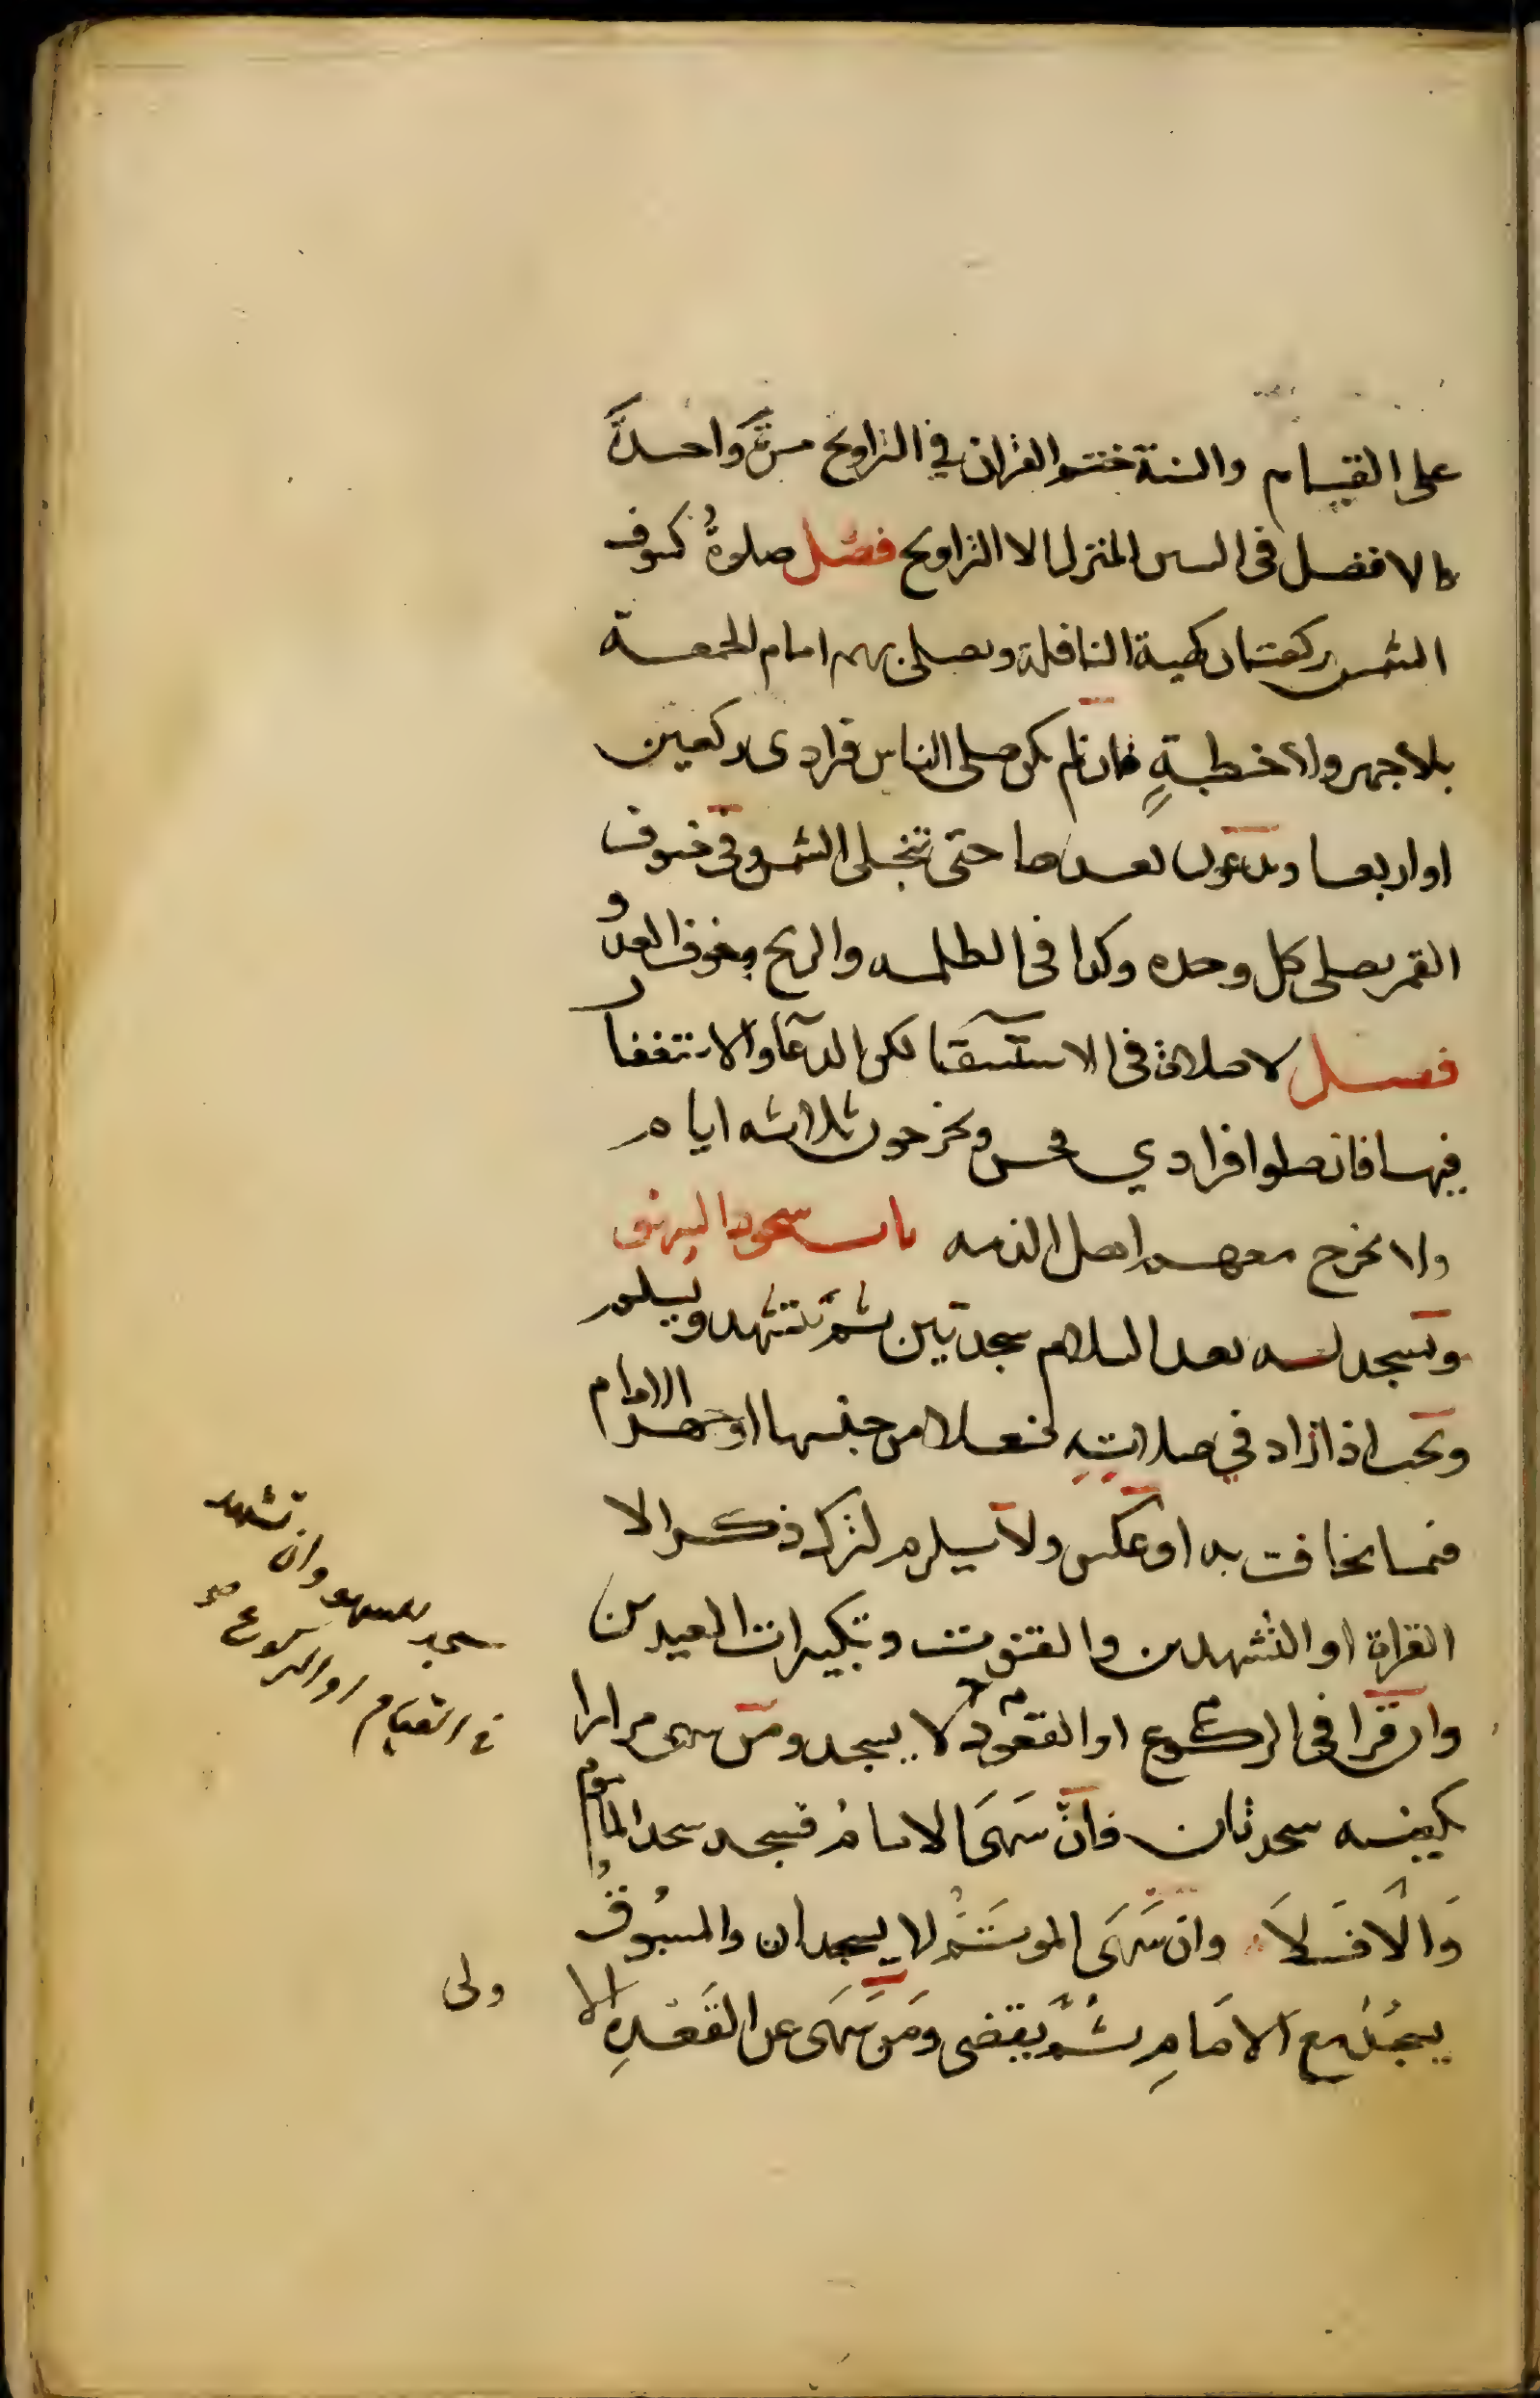 على القيام والسنة ختم القران في التراويح مرة واحدة
والافضل في السنن المنزل الا التراويح فصل صلوة كسوف
الشمس ركعتان كهية النافلة ويصلى بهم امام الجمعة
بلا جهر ولا خطبة فان لم يكن صلى الناس فرادى ركعتين
او اربعا ويدعون بعدها حتى تنجلى الشمس وفى خسوف
القمر يصلى كل وحده وكذا فى الظلمة والريح وخوف العدو
فصل لا صلاة فى الاستسقا لكن الدعا والاستغفار
فيها فان صلوا فرادي فحسن ويخرجون ثلاثة ايام
ولا يخرج معهم اهل الذمه باب سجود السهو
وتسجد له بعد السلام سجدتين ثم تتشهد ويسلم
ويجب اذا زاد في صلاته فعلا من جنسها او جهر الامام
فيما يخافت به او عكس ولا يلزم لترك ذكر الا
القراة او التشهدين والقنوت وتكبيرات العيدين
وان قرا فى الركوع او القعود لا يسجد ومن سهى مرارا
يكفيه سجدتان فان سهى الامام فسجد سجد الماموم
والا فلا وان سهى الموتم لا يسجدان والمسبوق
يسجد مع الامام ثم يقضى ومن سهى عن القعدة الا
ولى
سجد للسهو وان تشهد
في القيام او الركوع صح